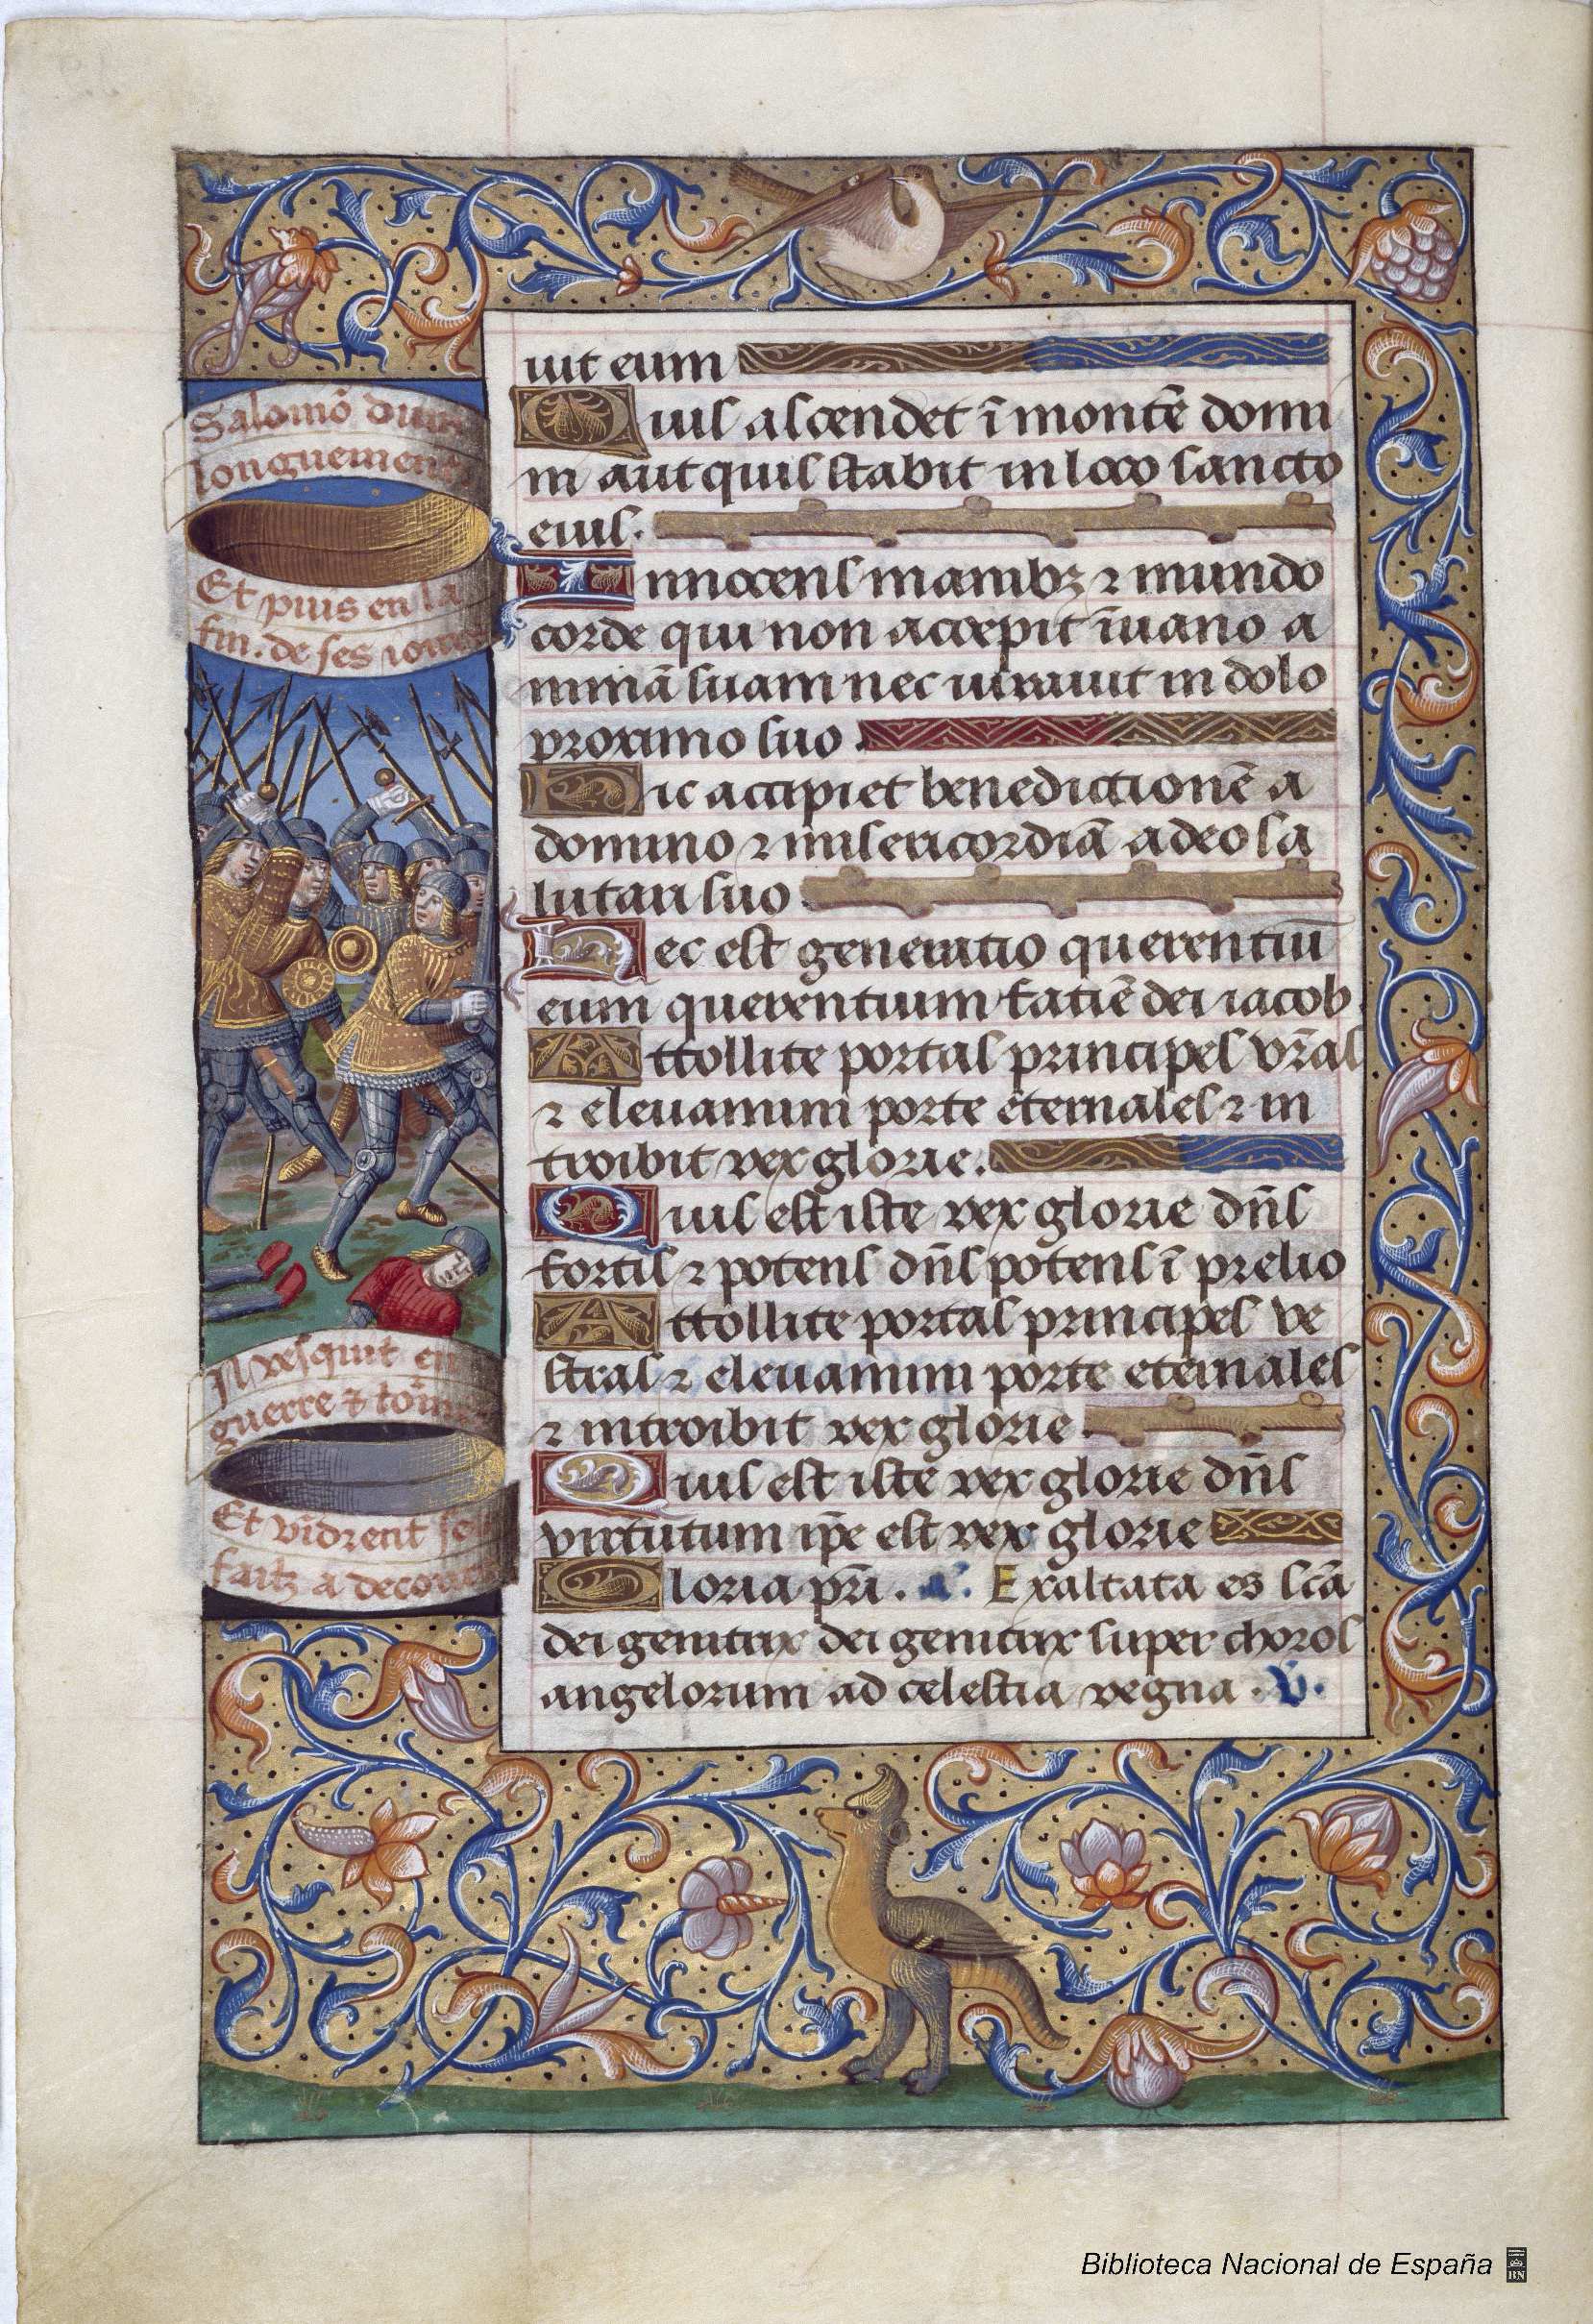 Salomō dura
longuement
Et puis en la
fin. de ses iours
Il vesquit en
guerre ⁊ tōm
Et vidrent ses
faitz a decour
uit eum
Quis ascendet ī montē domi
ni aut quis stabit in loco sancto
eius.
Innocens manibꝫ ⁊ mundo
corde qui non accepit ī uano a
nimā suam nec iurauit in dolo
proximo suo.
Hic accipiet benedictionē a
domino ⁊ misericordiā a deo sa
lutari suo.
Hec est generatio querentiū
eum querentium faciē dei iacob
Attollite portas principes vr̄as
⁊ eleuamini porte eternales ⁊ in
troibit rex glorie.
Quis est iste rex glorie dn̄s
fortis ⁊ potens dn̄s potens ī prelio
Attollite portas principes ve
stras ⁊ eleuamini porte eternales
⁊ introibit rex glorie.
Quis est iste rex glorie dn̄s
virtutum ip̄e est rex glorie
Gloria pr̄i. a. Exaltata es sc̄a
dei genitrix dei genitrix super choros
angelorum ad celestia regna. V.
Biblioteca Nacional de España
BN